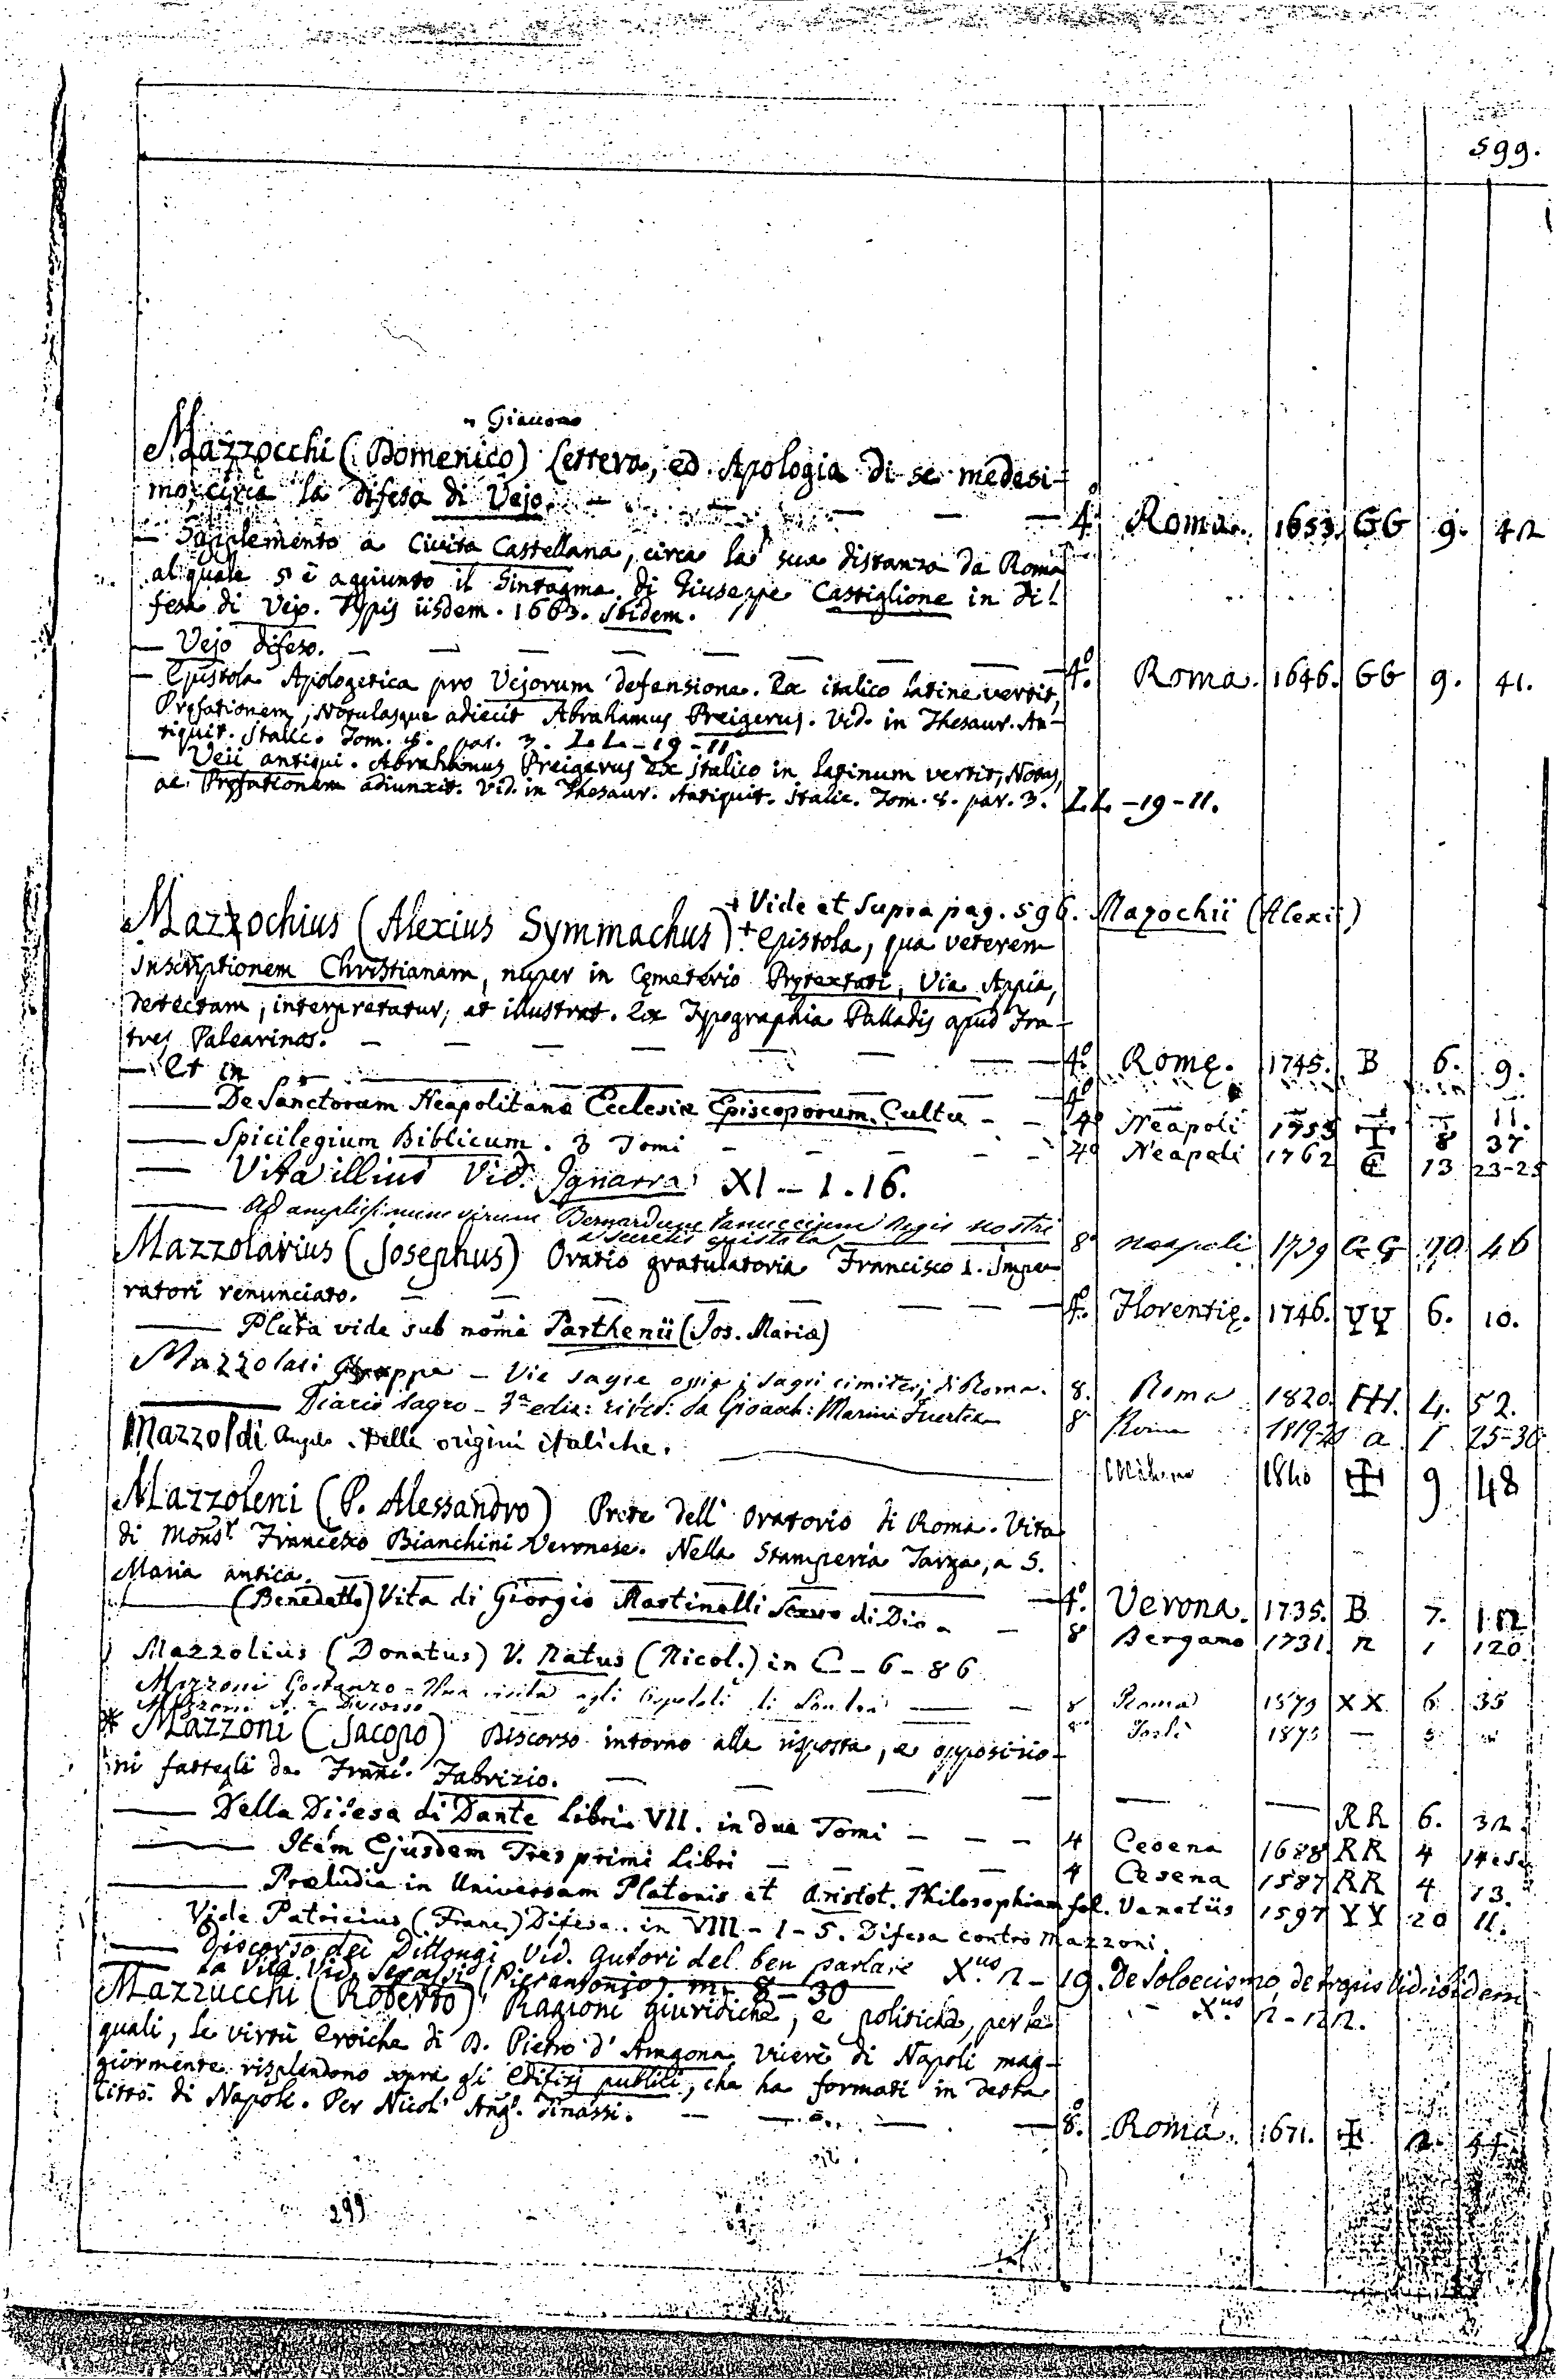 599.
„ Giacomo
Mazzocchi (Domenico) Lettera, ed Apologia di se medesi-
mo, circa la difesa di Vejo. — — — — — 4.º Roma. 1653. GG 9. 42
— Supplemento a Civita Castellana, circa la sua distanza da Roma
al quale s'è aggiunto il Sintagma di Giuseppe Castiglione in di-
fesa di Vejo. Typis iisdem. 1663. Ibidem.
— Vejo difeso. — — — — — — — — 4.º Roma. 1646. GG 9. 41.
— Epistola Apologetica pro Vejorum defensione. Ex italico latine vertit,
Pręfationem, Notulasque adiecit Abrahamus Preigerus. Vid. in Thesaur. An-
tiquit. Italic. Tom. 8. par. 3. LL-19-11.
— Veii antiqui. Abrahamus Preigerus Ex italico in latinum vertit, Notas,
ac Pręfationem adiunxit. Vid. in Thesaur. Antiquit. Italic. Tom. 8. par. 3. LL-19-11.
+ Vide et Supra pag. 596. Mazochii (Alexii)
Mazzochius (Alexius Symmachus) + Epistola, qua veterem
Inscriptionem Christianam, nuper in Cęmeterio Prętextati, Via Appia,
detectam, interpretatur, et illustrat. Ex Typographia Palladis apud Fra-
tres Palearinos. — — — — — — 4.º Romę. 1745. B 6. 9.
— Et in — — — — — 4º — — — — 11.
— De Sanctorum Neapolitanæ Ecclesiæ Episcoporum Cultu - - 4º Neapoli 1753 ☩ 8 37
— Spicilegium Biblicum. 3 Tomi - - - - - 4º Neapoli 1762 C 13 23-25
— Vita illius Vid. Ignarra XI - 1. 16.
— Ad amplissimum virum Bernardum Tanuccium Regis nostri
a secretis epistola 8º Neapoli 1739 GG 10 46
Mazzolarius (Josephus) Oratio gratulatoria Francisco I. Impe-
ratori renunciato. — — — — — — 4.º Florentię. 1746. YY 6. 10.
— Plura vide sub nomine Parthenii (Jos. Maria)
Mazzolari Giuseppe — Vie sagre ossia i sagri cimiterj di Roma. 8. Roma 1820. HH. 4. 52.
— Diario Sagro - 3ª ediz: rived: da Gioach: Marini 8º Roma 1819- a 1 25-30
Mazzoldi Angelo. Delle origini italiche. — Milano 1840 ☩ 9 48
Mazzoleni (P. Alessandro) Prete dell' Oratorio di Roma. Vita
di Monsr Francesco Bianchini Veronese. Nella Stamperia Targa, a S.
Maria antica. — — — — — 4.º Verona. 1735. B 7. 12
— (Benedetto) Vita di Giorgio Mastinelli Servo di Dio - - 8 Bergamo 1731. n 1 120
Mazzolius (Donatus) V. Natus (Nicol.) in C - 6 - 86
Mazzoni Costanzo = Una visita agli Ospedali di Londra — 8 Roma 1879 XX 6 35
Mazzoni A. = Discorso 8º Forlì 1875 —
* Mazzoni (Jacopo) Discorso intorno alla risposta, e opposizio-
ni fattegli da Franc. Fabrizio. — — — — — RR 6. 32.
— Della Difesa di Dante Libri VII. in due Tomi - - - 4 Cesena 1688 RR 4
— Item Ejusdem Tres primi Libri - - - - 4 Cesena 1587 RR 4 13.
— Præludia in Universam Platonis et Aristot. Philosophiam fol. Venetiis 1597 YY 20 11.
Vide Patricius (Franc) Difesa.. in VIII - 1 - 5. Difesa contro Mazzoni.
— Discorso dei Dittongi Vid. Autori del ben parlare X.us 2 - 19. De Soloecismo, de tropis Vid. ibidem
— La Vita Vid. Serassi (Pierantonio) m - 8 - 30 - X.us 2 - 22.
Mazzucchi (Roberto) Ragioni giuridiche, e politiche, per le
quali, le virtù eroiche di D. Pietro d'Aragona Vicerè di Napoli mag-
giormente risplendono sopra gli Edifizj publici, che ha formati in detta
Città di Napoli. Per Nicol' Ang. Tinassi. — — — — 8.º Roma. 1671. ☩ 2. 44.
299